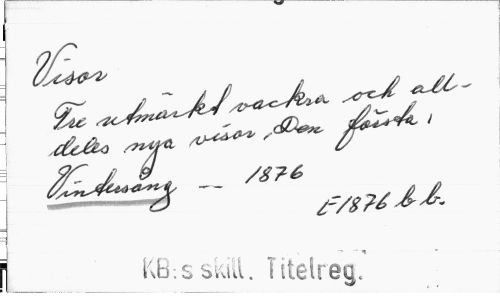 Visor
Tre utmärkt vackra och all-
deles nya visor, Den första,
Vintersång -- 1876
E1876 b b.
KB:s skill. Titelreg.